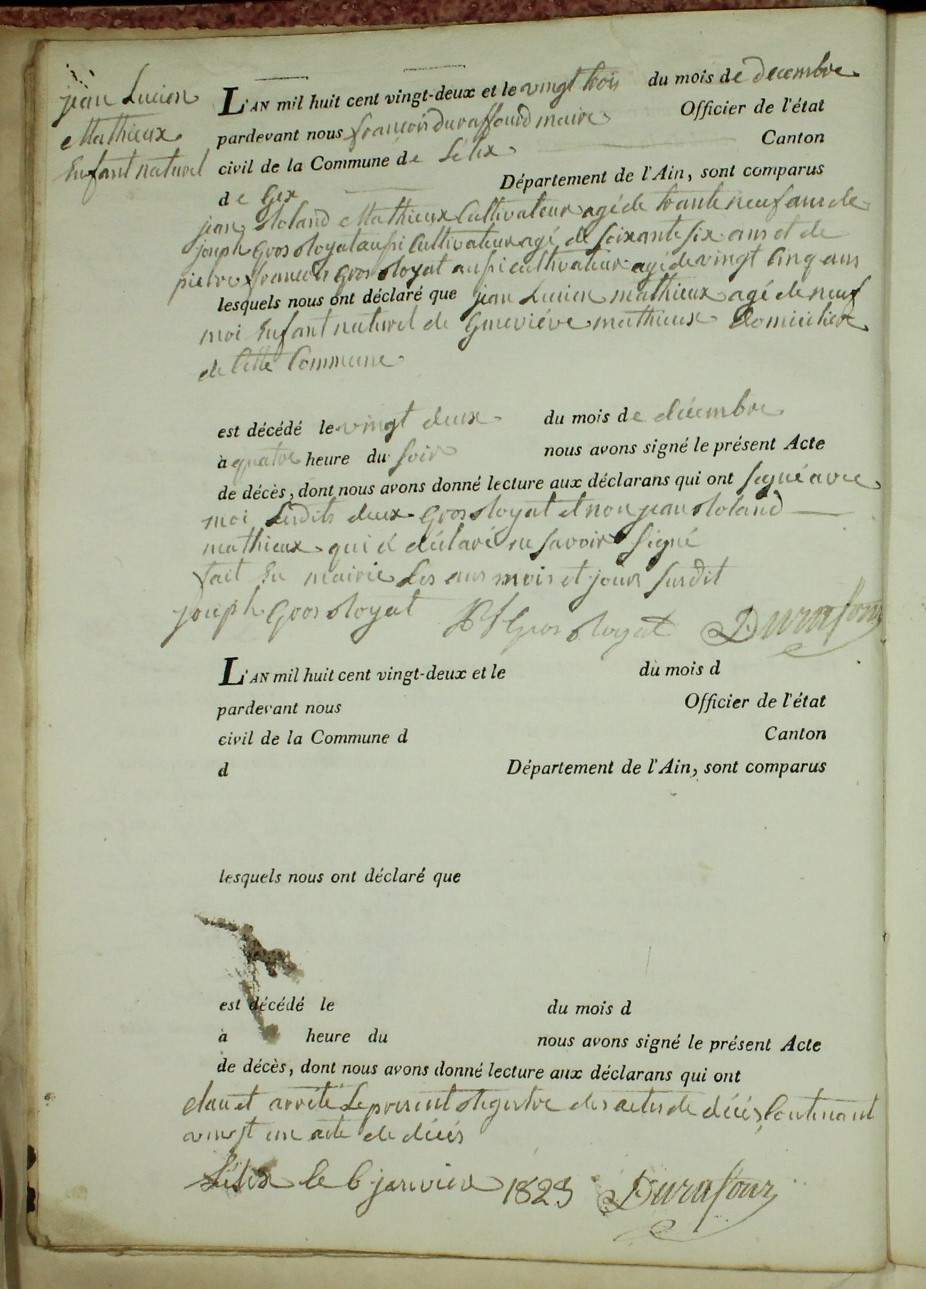 jean Lucien
Mathieux
Enfant naturel
L'AN mil huit cent vingt-deux et le vingt trois du mois de decembre
pardevant nous francois duraffourd maire Officier de l'état
civil de la Commune de Lélex Canton
de Gex Département de l'Ain, sont comparus
jean Roland Mathieux Cultivateur agé de trante neuf ans de
joseph Gros Royat aussi Cultivateur agé de soixante six ans et de
pierre francois Gros Royat aussi cultivateur agé de vingt Cinq ans
lesquels nous ont déclaré que jean Lucien mathieux agé de neuf
moi Enfant naturel de Geneviéve mathieux Domiciliée
de Cette Commune
est décédé le vingt deux du mois de décembre
à quatre heure du soir nous avons signé le présent Acte
de décès, dont nous avons donné lecture aux déclarans qui ont signé avec
moi Lesdits deux Gros Royat et non jean Roland
mathieux qui a déclaré ne savoir signé
fait En mairie Les ans mois et jour susdit
joseph Gros Royat PF Gros Royat Durafour
L'AN mil huit cent vingt-deux et le du mois d
pardevant nous Officier de l'état
civil de la Commune d Canton
d Département de l'Ain, sont comparus
lesquels nous ont déclaré que
est décédé le du mois d
à heure du nous avons signé le présent Acte
de décès, dont nous avons donné lecture aux déclarans qui ont
clau et arrété Le present Registre des actes de décés Contenant
vingt un acte de décés
Lélex le 6 janvier 1823 Durafour